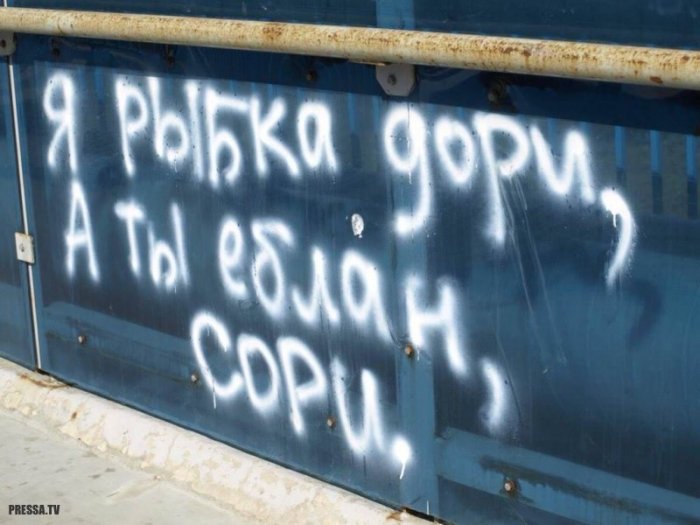 Я РЫБКА ДОРИ,
А ТЫ еблан,
СОРИ.
PRESSA.TV